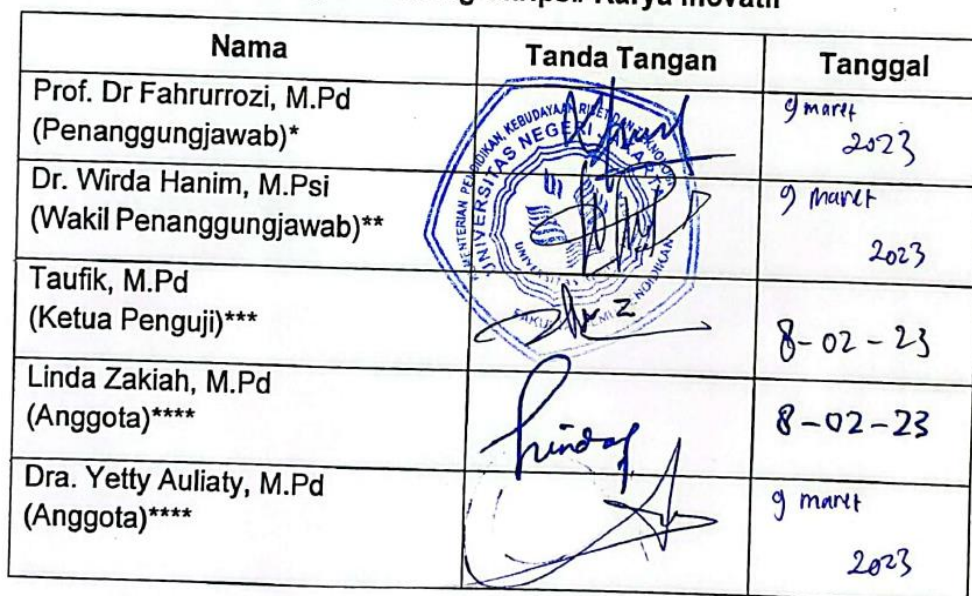 Karya Inovatif
Nama Tanda Tangan Tanggal
Prof. Dr Fahrurrozi, M.Pd
(Penanggungjawab)*
9 maret
2023
Dr. Wirda Hanim, M.Psi
(Wakil Penanggungjawab)**
9 maret
2023
Taufik, M.Pd
(Ketua Penguji)***
8-02-23
Linda Zakiah, M.Pd
(Anggota)****
8-02-23
Dra. Yetty Auliaty, M.Pd
(Anggota)****
9 maret
2023
UNIVERSITAS NEGERI JAKARTA